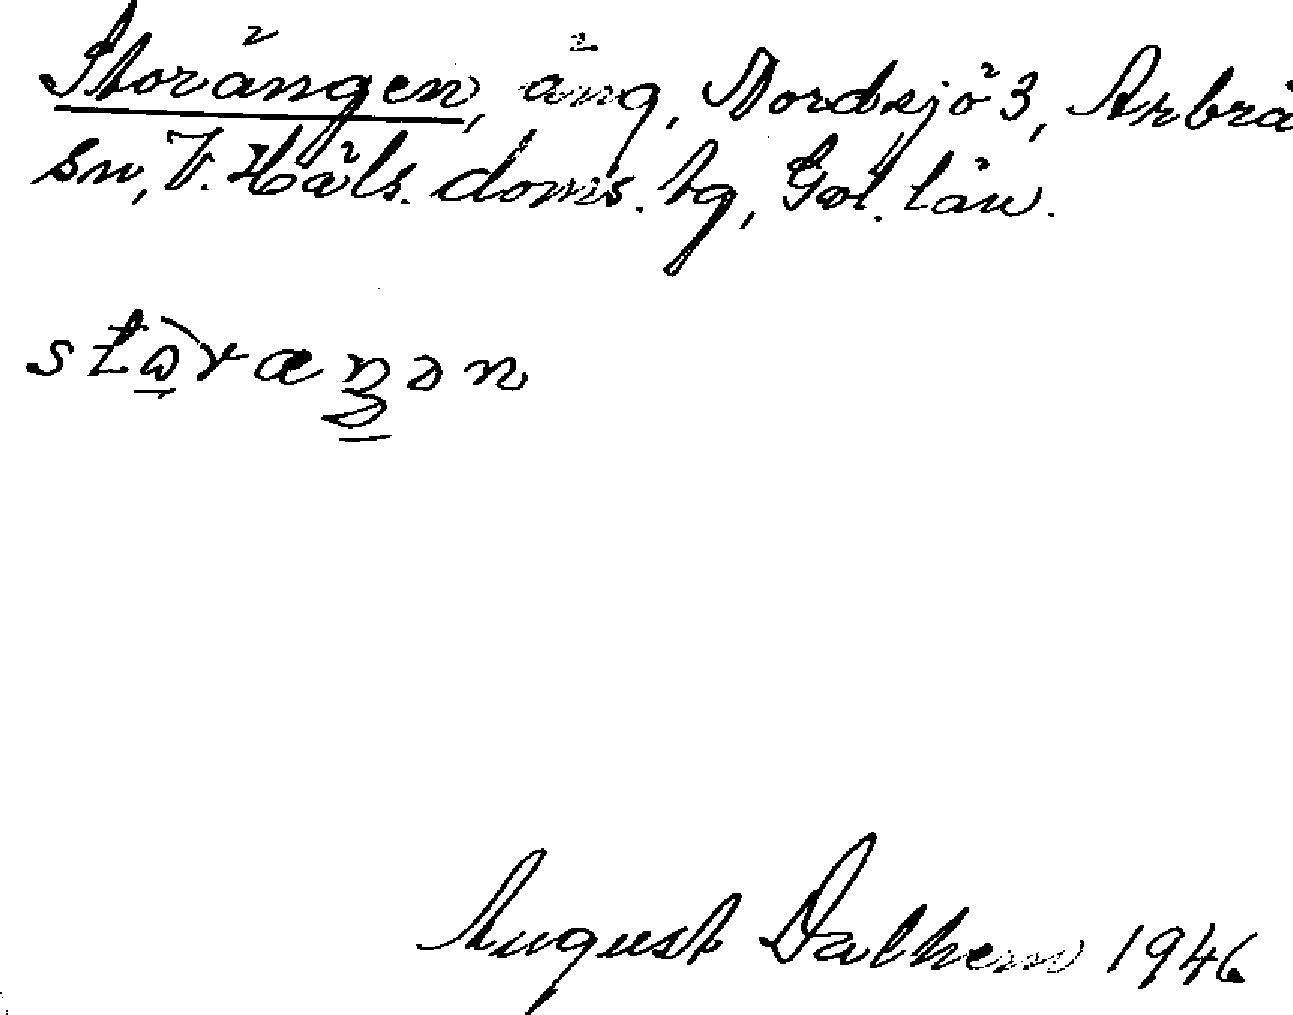 Storängen, äng, Nordsjö 3, Arbrå
sn, V. Häls. doms. tg, Gäl. län.
August Dalhem 1946